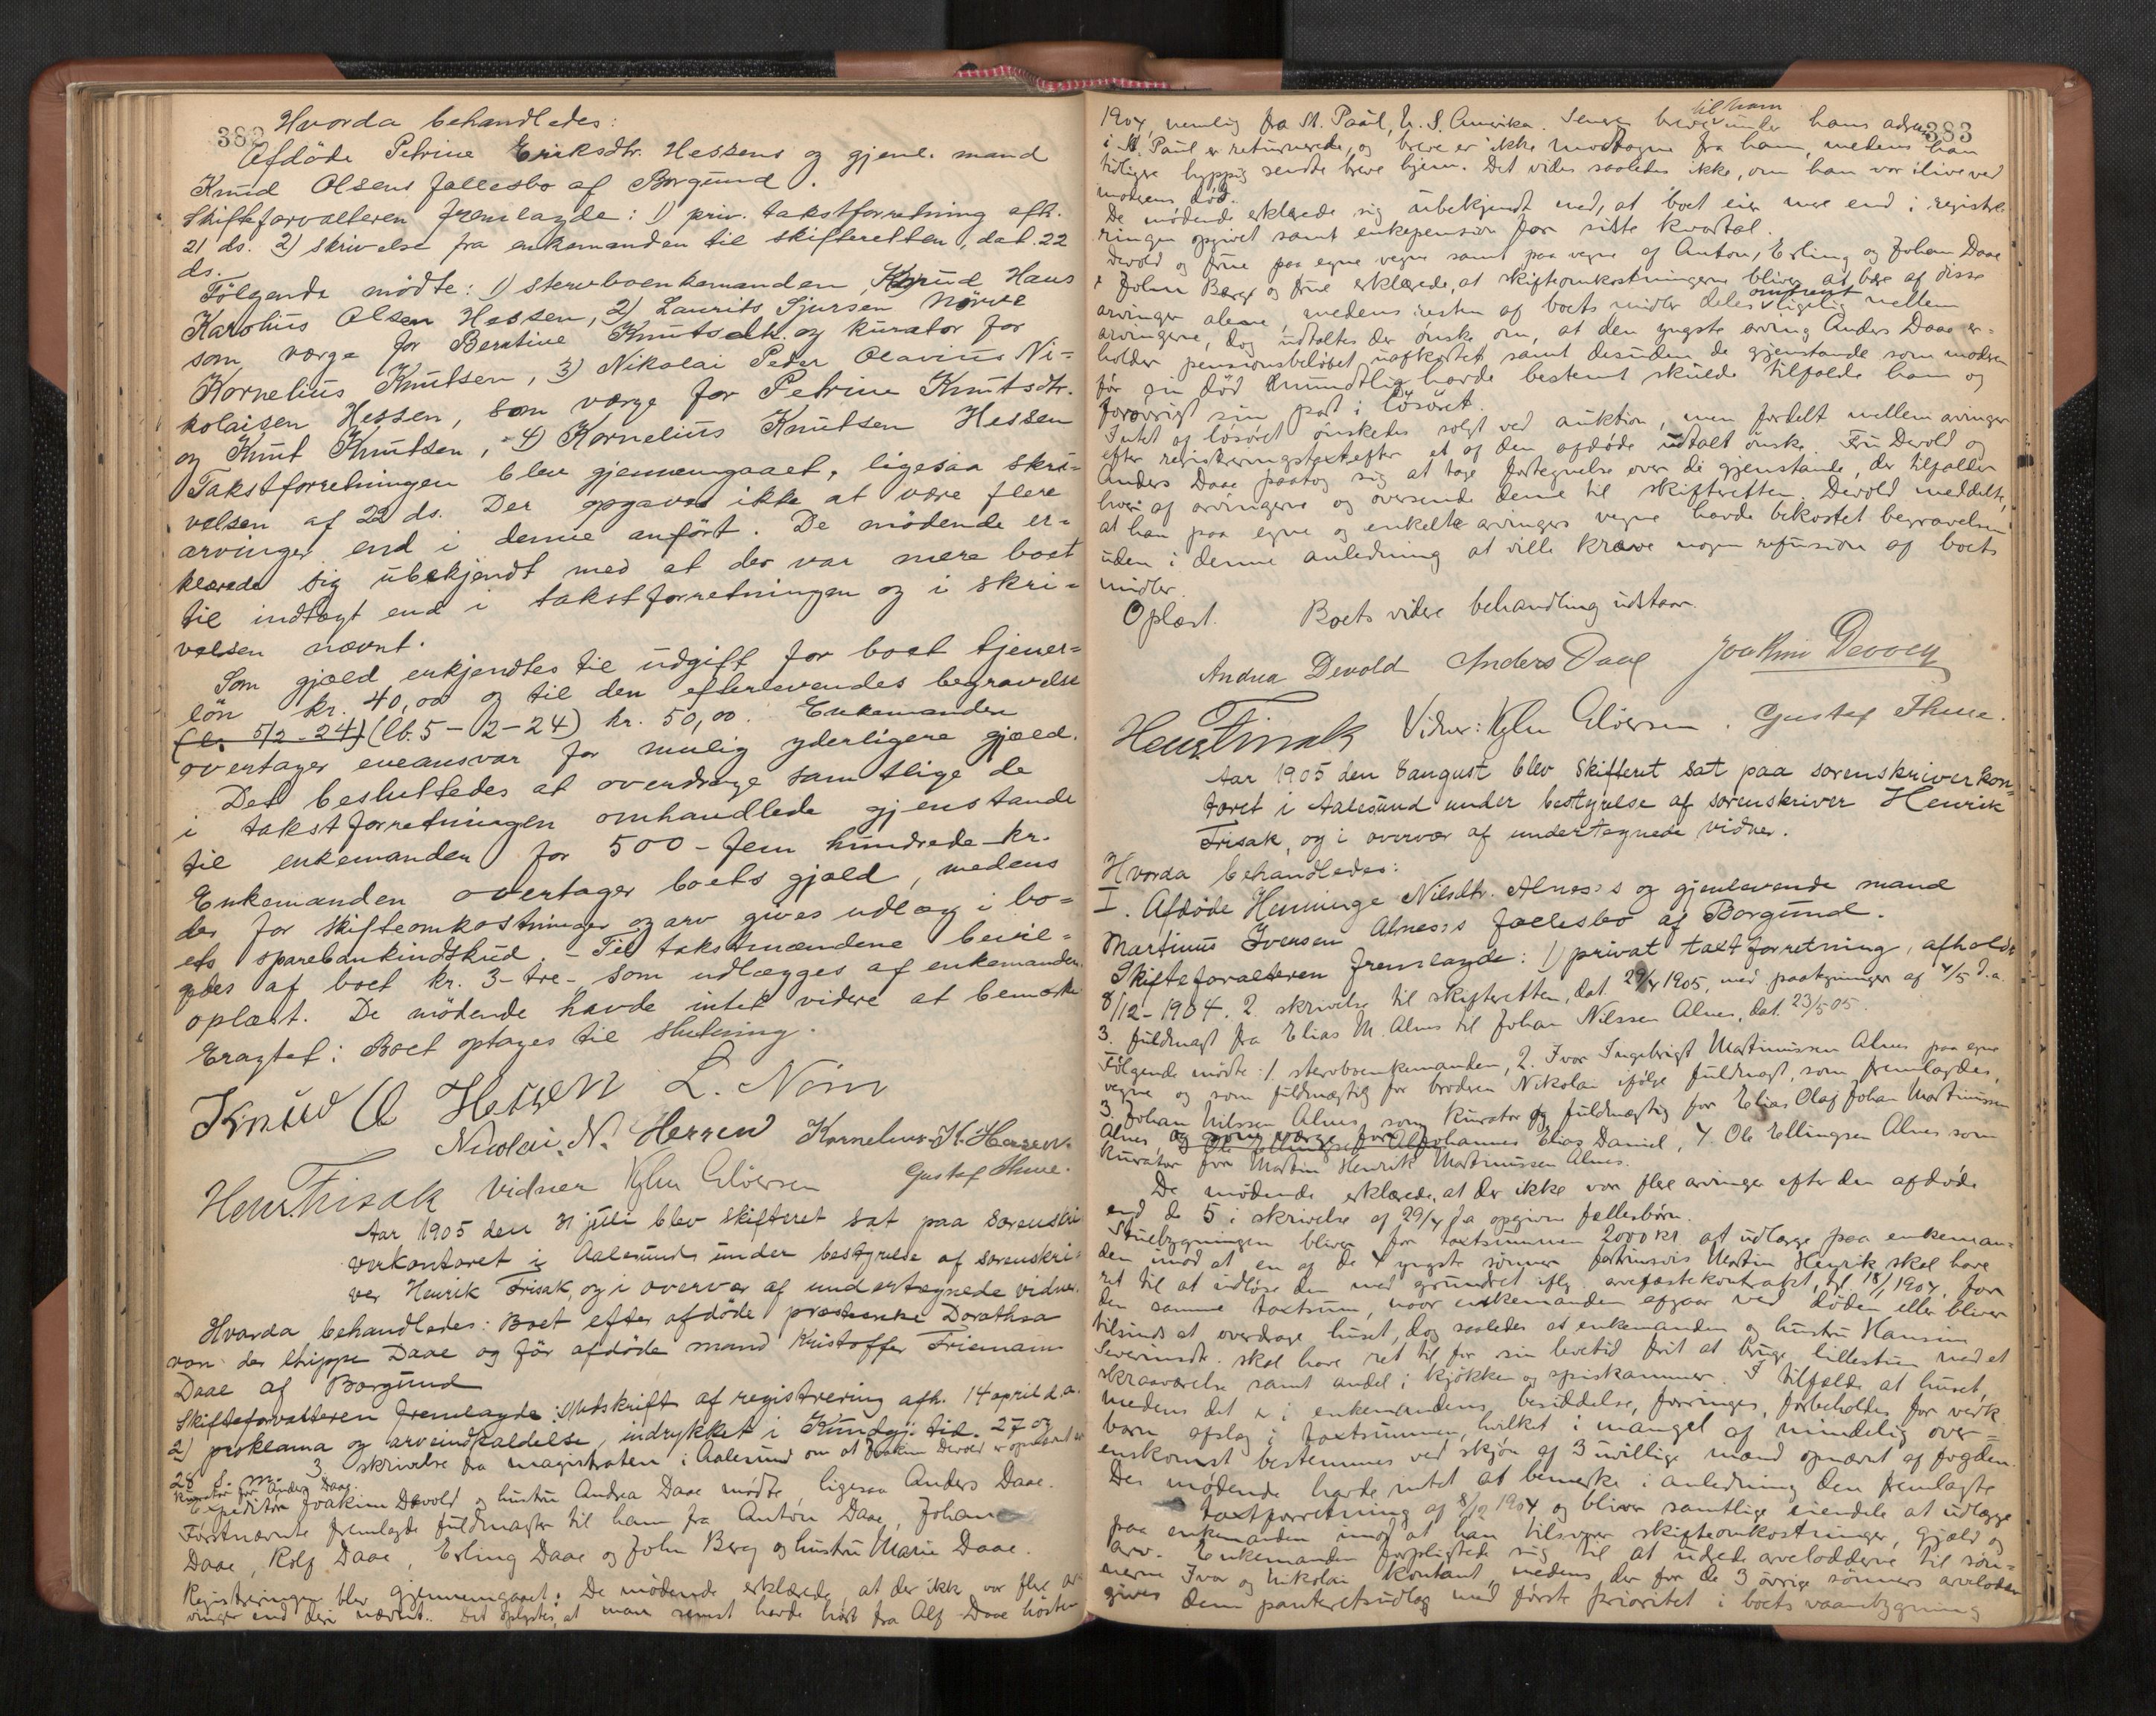 382
Hvorda behandledes:
Afdøde Petrine Eriksdtr. Hessens og gjenl. mand
Knud Olsens fællesbo af Borgund.
Skifteforvalteren fremlagde: 1) priv. takstforretning afh.
21 ds. 2) skrivelse fra enkemanden til skifteretten, dat. 22
ds.
Følgende mødte: 1) stervboenkemanden, Knud Hans
Karolius Olsen Hessen, 2) Laurits Sjursen Nørve
som værge for Berntine Knutsdtr. og kurator for
Kornelius Knutsen, 3) Nikolai Peter Olavius Ni=
kolaisen Hessen, som værge for Petrine Knutsdtr.
og Knut Knutsen, 4) Kornelius Knutsen Hessen
Takstforretningen blev gjennemgaaet, ligesaa skri=
velsen af 22 ds. Der opgaves ikke at være flere
arvinger end i denne anført. De mødende er=
klærede sig ubekjendt med at der var mere boet
til indtægt end i takstforretningen og i skri=
velsen nævnt.
Som gjæld erkjendtes til udgift for boet tjener=
løn kr. 40,00 og til den efterlevendes begravelse
(lb. 5/2-24) (lb. 5-2-24) kr. 50,00. Enkemanden
overtager eneansvar for mulig yderligere gjæld.
Det besluttedes at overdrage samtlige de
i takstforretningen omhandlede gjenstande
til enkemanden for 500 - fem hundrede - kr.
Enkemanden overtager boets gjæld, medens
der for skifteomkostninger og arv gives udlæg i bo=
ets sparebankindskud. - Til takstmændene bevil=
gdes af boet kr. 3 - tre - som udlægges af enkemanden.
oplæst. De mødende havde intet videre at bemærke
Eragtet: Boet optages til slutning.
Knud O Hessen L. Nörv
Nicolai. N. Hessen Kornelius K. Hessen.
Henr. Frisak Vidner Kghn Cløersen Gustaf Thue.
Aar 1905 den 31 juli blev skifteret sat paa sorenskri
verkontoret i Aalesund under bestyrelse af sorenskri=
ver Henrik Frisak, og i overvær af undertegnede vidner.
Hvorda behandledes: Boet efter afdøde præstenke Dorothea
von der Lippe Daae og før afdøde mand Kristoffer Friemann
Daae af Borgund
Skifteforvalteren fremlagde: 1) Udskrift af registrering afh. 14 april d.a.
2) proklama og arveindkaldelse, indrykket i Kundgj. tid. 27 og
28 s. m. 3. skrivelse fra magistraten i Aalesund om at Joakim Devold er opnævnt
kurator for Anders Daae.
Expeditør Joakim Devold og hustru Andrea Daae mødte, ligesaa Anders Daae.
Førstnævnte fremlagde fuldmagter til ham fra Anton Daae, Johan
Daae, Rolf Daae, Erling Daae og John Berg og hustru Marie Daae.
Registreringen blev gjennemgaaet. De mødende erklærede, at der ikke var flere ar
vinger end deri nævnt. Det oplystes, at man senest havde hørt fra Alf Daae høsten
383
1904, nemlig fra St. Paul, U. S. Amerika. Senere breve til ham under hans adresse
i St. Paul er returnerede, og breve er ikke modtagne fra ham, medens han
tidligere hyppig sendte breve hjem. Det vides saaledes ikke, om han var ilive ved
moderens død.
De mødende erklærede sig ubekjendt med, at boet eier mere end i registre
ringen opgivet samt enkepension for siste kvartal.
Devold og frue paa egne vegne samt paa vegne af Anton, Erling og Johan Daae
+ John Berg og frue erklærede, at skifteomkostningerne bliver at bære af disse
arvinger alene, medens resten af boets midler deles omtrent ligelig mellem
arvingerne, dog udtaltes der ønske om, at den yngste arving Anders Daae er=
holder pensionsbeløbet uafkortet samt desuden de gjenstande som moderen
før sin død mundtlig havde bestemt skulde tilfalde ham og
forøvrigt sin part i løsøret.
Intet af løsøret ønskedes solgt ved auktion, men fordelt mellem arvinger
efter registreringstaxt efter et af den afdøde udtalt ønske. Fru Devold og
Anders Daae paatog sig at tage fortegnelse over de gjenstande, der tilfalder
hver af arvingerne og oversende denne til skifteretten. Devold meddelte,
at han paa egne og enkelte arvingers vegne havde bekostet begravelsen
uden i denne anledning at ville kræve nogen refusion af boets
midler.
Oplæst. Boets videre behandling udstaar.
Andrea Devold Anders Daae Joakim Devold
Henr. Frisak Vidner: Kghn Cløersen. Gustaf Thue.
Aar 1905 den 8 august blev skifteret sat paa sorenskriverkon=
toret i Aalesund under bestyrelse af sorenskriver Henrik
Frisak, og i overvær af undertegnede vidner.
Hvorda behandledes:
I. Afdøde Henninge Nilsdtr. Alnes's og gjenlevende mand
Martinus Iversen Alnes's fællesbo af Borgund.
Skifteforvalteren fremlagde: 1) privat taxtforretning, afholdt
8/12-1904. 2. skrivelse til skifteretten, dat 29/4 1905, med paategninger af 4/5 d.a.
3. fuldmagt fra Elias M. Alnes til Johan Nilssen Alnes, dat. 23/5 05.
Følgende mødte: 1. stervboenkemanden, 2. Ivar Ingebrigt Martinussen Alnes paa egne
vegne og som fuldmægtig for broderen Nikolai ifølge fuldmagt, som fremlagdes,
3. Johan Nilssen Alnes, som kurator og fuldmægtig for Elias Olaf Johan Martinussen
Alnes, og som værge for Johannes Elias Daniel, 4. Ole Ellingsen Alnes som
kurator for Martin Henrik Martinussen Alnes.
De mødende erklærede, at der ikke var flere arvinger efter den afdøde
end de 5 i skrivelse af 29/4 d.a. opgivne fællesbørn.
Stuebygningen bliver for taxtsummen 2000 kr at udlægge paa enkeman=
den imod at en af de 4 yngste sønner fortrinsvis Martin Henrik skal have
ret til at indløse den med grundret iflg. arvefæstekontrakt, tgl. 18/1 1904, for
den samme taxtsum, naar enkemanden afgaar ved døden eller bliver
tilsinds at overdrage huset, dog saaledes at enkemanden og hustru Hansine
Severinsdtr. skal have ret til for sin levetid frit at bruge lillestuen med et
skraaværelse samt andel i kjøkken og spiskammer. I tilfælde at huset,
medens det er i enkemandens besiddelse, forringes, forbeholdes for vedk.
barn afslag i taxtsummen, hvilket i mangel af mindelig over=
enskomst bestemmes ved skjøn af 3 uvillige mænd opnævnt af fogden.
De mødende havde intet at bemærke i anledning den fremlagte
taxtforretning af 8/12 1904 og bliver samtlige eiendele at udlægge
paa enkemanden imod at han tilsvarer skifteomkostninger, gjæld og
arv. Enkemanden forpligtede sig til at udrede arvelodderne til søn=
nerne Ivar og Nikolai kontant, medens der for de 3 øvrige sønners arvelodder
gives dem panteretsudlæg med første prioritet i boets vaanbygning